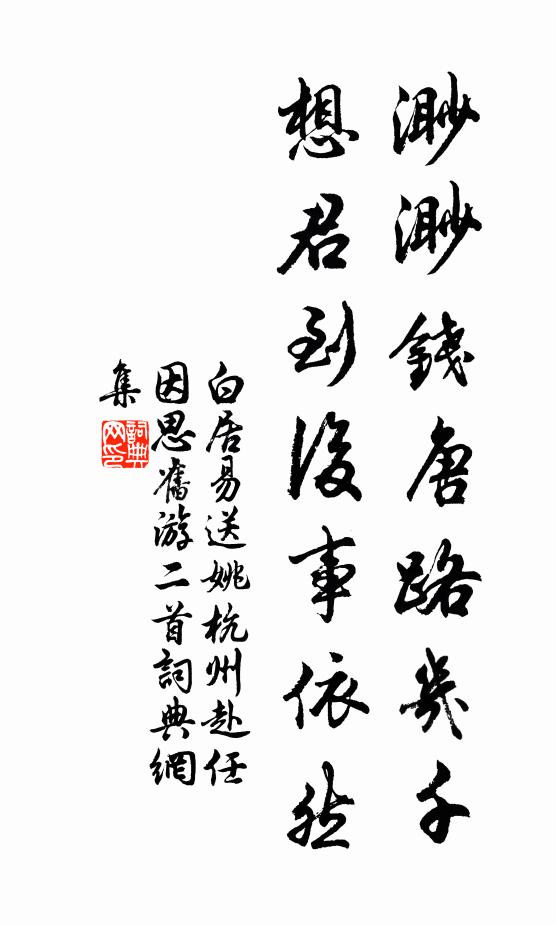 渺渺錢唐路幾千
想君到後事依然
白居易送姚杭州赴任
因思舊游二首詞典網
集
詞典网印